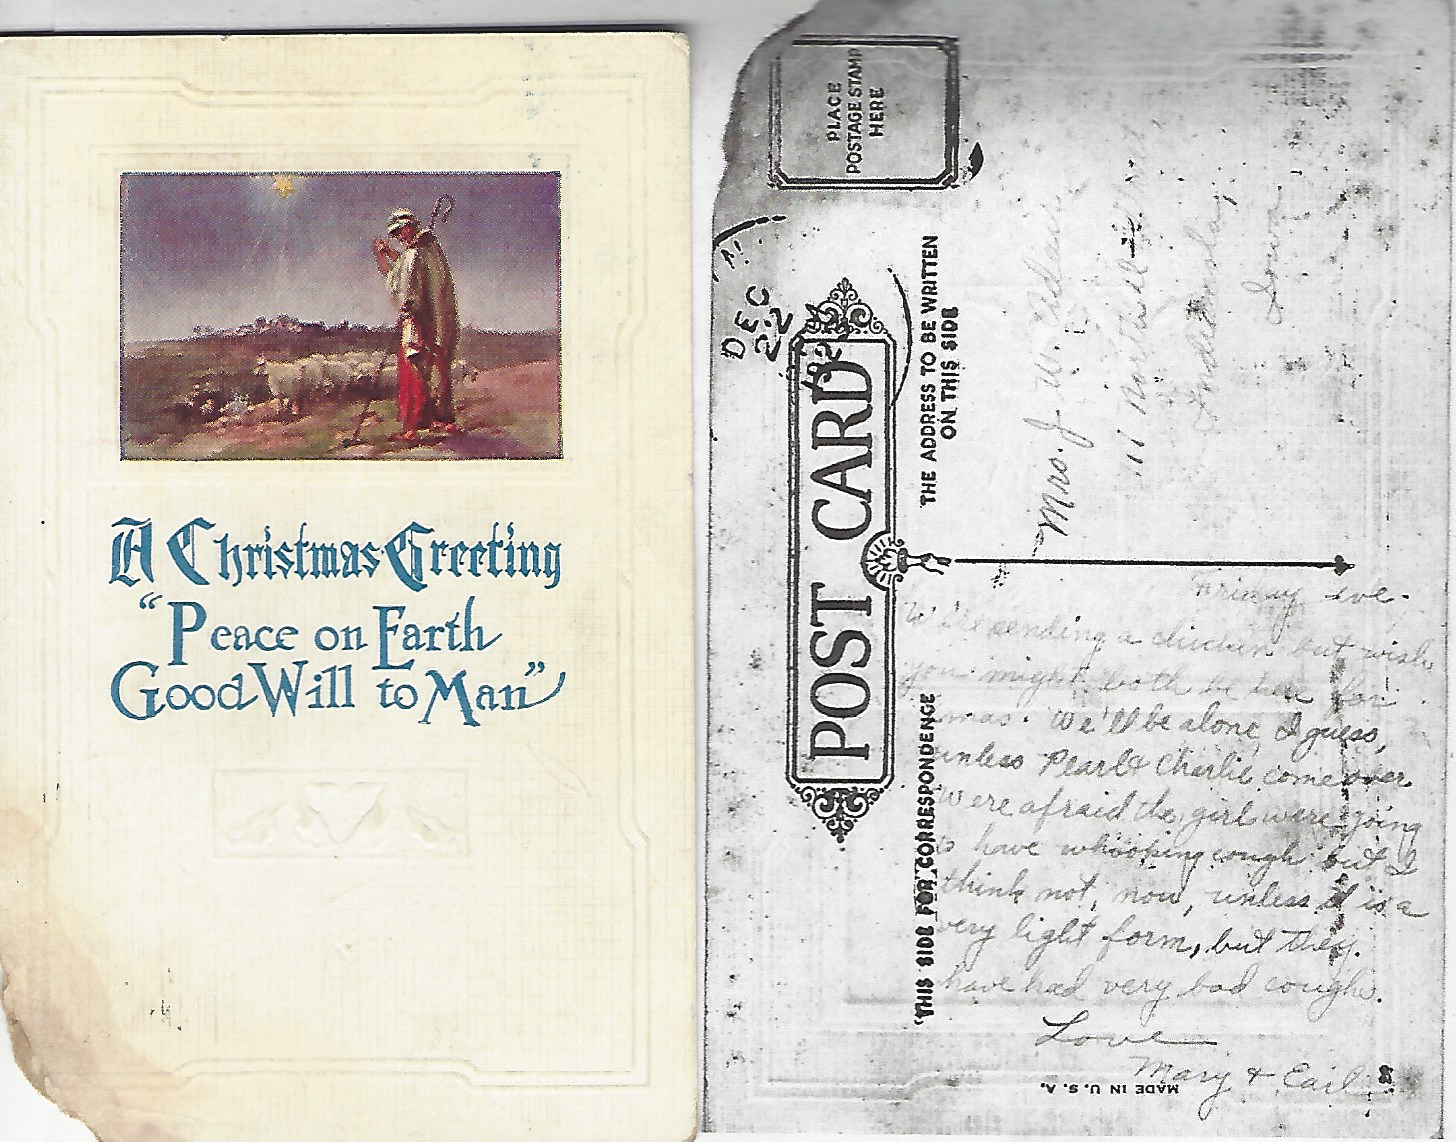 A Christmas Greeting
“Peace on Earth
Good Will to Man”
PLACE
POSTAGE STAMP
HERE
DEC
22
POST CARD
THE ADDRESS TO BE WRITTEN
ON THIS SIDE
Mrs. J. W.
111 North
Indianola,
Iowa
THIS SIDE FOR CORRESPONDENCE
Friday eve.
We're sending a chicken but wish
you might both be here for
mas. We'll be alone I guess,
unless Pearl & Charlie come over.
Were afraid the girl were going
to have whooping cough but I
think not, now, unless it is a
very light form, but they
have had very bad coughs.
Love
Mary & Earl
MADE IN U.S.A.